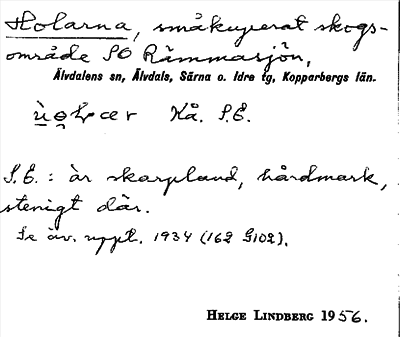 Holarna, småkuperat skogs-
område SO Rämmasjön,
Älvdalens sn, Älvdals, Särna o. Idre tg, Kopparbergs län.
Kå. S.E.
S.E.: är skarpland, hårdmark,
stenigt där.
Se äv. uppt. 1934 (162 G102).
HELGE LINDBERG 1956.